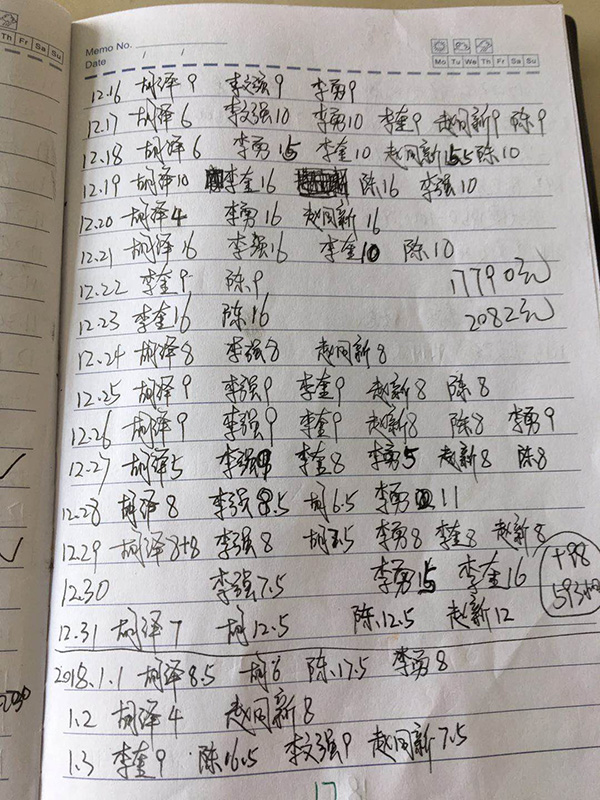 Th Fr Sa Su
Memo No.
Date / /
Mo Tu We Th Fr Sa Su
12.16 胡泽9 李文强9 李勇9
12.17 胡泽6 李文强10 李勇10 李奎9 赵同新9 陈9
12.18 胡泽6 李勇15 李奎10 赵同新15.5 陈10
12.19 胡泽10 李奎16 陈16 李强10
12.20 胡泽4 李勇16 赵同新16
12.21 胡泽16 李强16 李奎10 陈10
12.22 李奎9 陈9 17790元
12.23 李奎16 陈16 2082元
12.24 胡泽8 李强8 赵同新8
12.25 胡泽9 李强9 李奎9 赵新8 陈8
12.26 胡泽9 李强9 李奎9 赵新8 陈8 李勇9
12.27 胡泽5 李强9 李奎8 李勇5 赵新8 陈8
12.28 胡泽8 李强8.5 胡6.5 李勇11
12.29 胡泽8+8 李强8 胡 李勇8 李奎8 赵新8
12.30 李强7.5 李勇15 李奎16
+98
593
12.31 胡泽7 胡12.5 陈.12.5 赵新12
2018.1.1 胡泽8.5 胡6 陈.17.5 李勇8
1.2 胡泽4 赵同新8
1.3 李奎9 陈16.5 李文强9 赵同新7.5